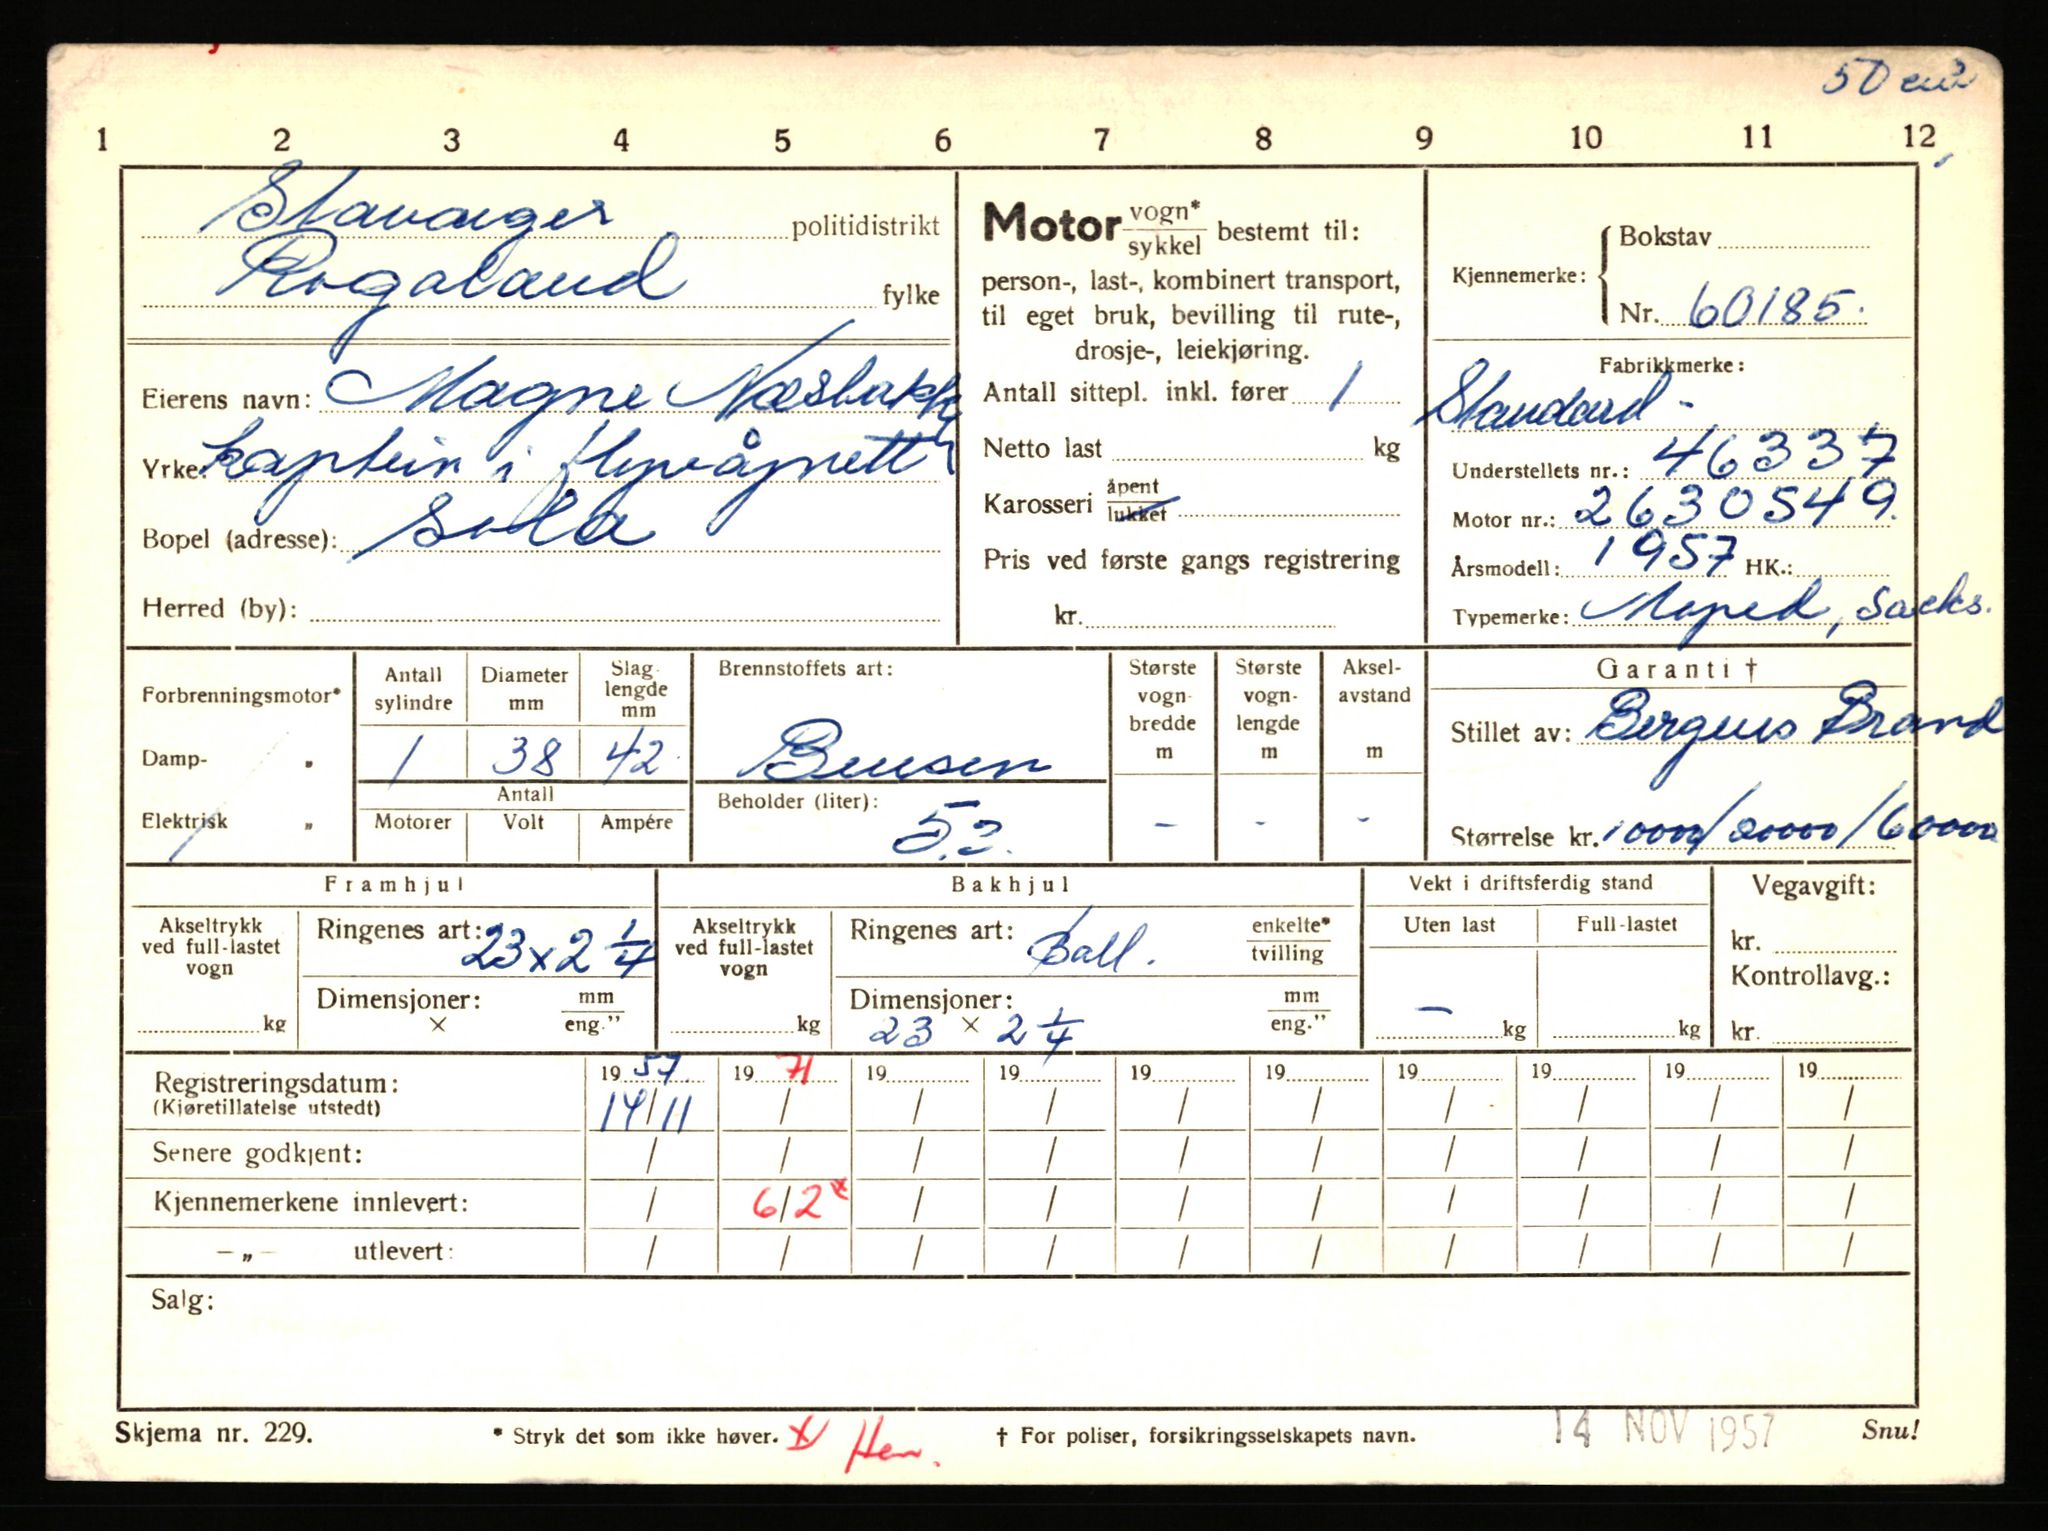 50 cm³
1 2 3 4 5 6 7 8 9 10 11 12
Stavanger politidistrikt
Rogaland fylke
Eierens navn: Magne Næsbakk
Yrke: kaptein i flyvåpnett
Bopel (adresse): Sola
Herred (by):
Motor vogn*/sykkel bestemt til:
person-, last-, kombinert transport,
til eget bruk, bevilling til rute-,
drosje-, leiekjøring.
Antall sittepl. inkl. fører 1
Netto last kg
Karosseri åpent/lukket
Pris ved første gangs registrering
kr.
Kjennemerke: Bokstav
Nr. 60185.
Fabrikkmerke:
Standard -
Understellets nr.: 46337
Motor nr.: 2630549.
Årsmodell: 1957 HK.:
Typemerke: Moped, Sacks.
Forbrenningsmotor*
Damp- „
Elektrisk „
Antall sylindre 1
Diameter mm 38
Slaglengde mm 42
Antall
Motorer Volt Ampére
Brennstoffets art:
Bensin
Beholder (liter): 5,2.
Største vognbredde m -
Største vognlengde m -
Akselavstand m -
Garanti †
Stillet av: Bergens Brand
Størrelse kr. 10000/20000/60000
Framhjul
Akseltrykk ved full-lastet vogn kg
Ringenes art: 23 x 2 1/4
Dimensjoner: × mm/eng."
Bakhjul
Akseltrykk ved full-lastet vogn kg
Ringenes art: Ball. enkelte*/tvilling
Dimensjoner: 23 × 2 1/4 mm/eng."
Vekt i driftsferdig stand
Uten last Full-lastet
- kg kg
Vegavgift:
kr.
Kontrollavg.:
kr.
Registreringsdatum: 19 57. 19 71 19 19 19 19 19 19 19 19
(Kjøretillatelse utstedt) 14/11 / / / / / / / / /
Senere godkjent: / / / / / / / / / /
Kjennemerkene innlevert: / 6/2* / / / / / / / /
—„— utlevert: / / / / / / / / / /
Salg:
Skjema nr. 229. * Stryk det som ikke høver. † For poliser, forsikringsselskapets navn. 14 NOV 1957 Snu!